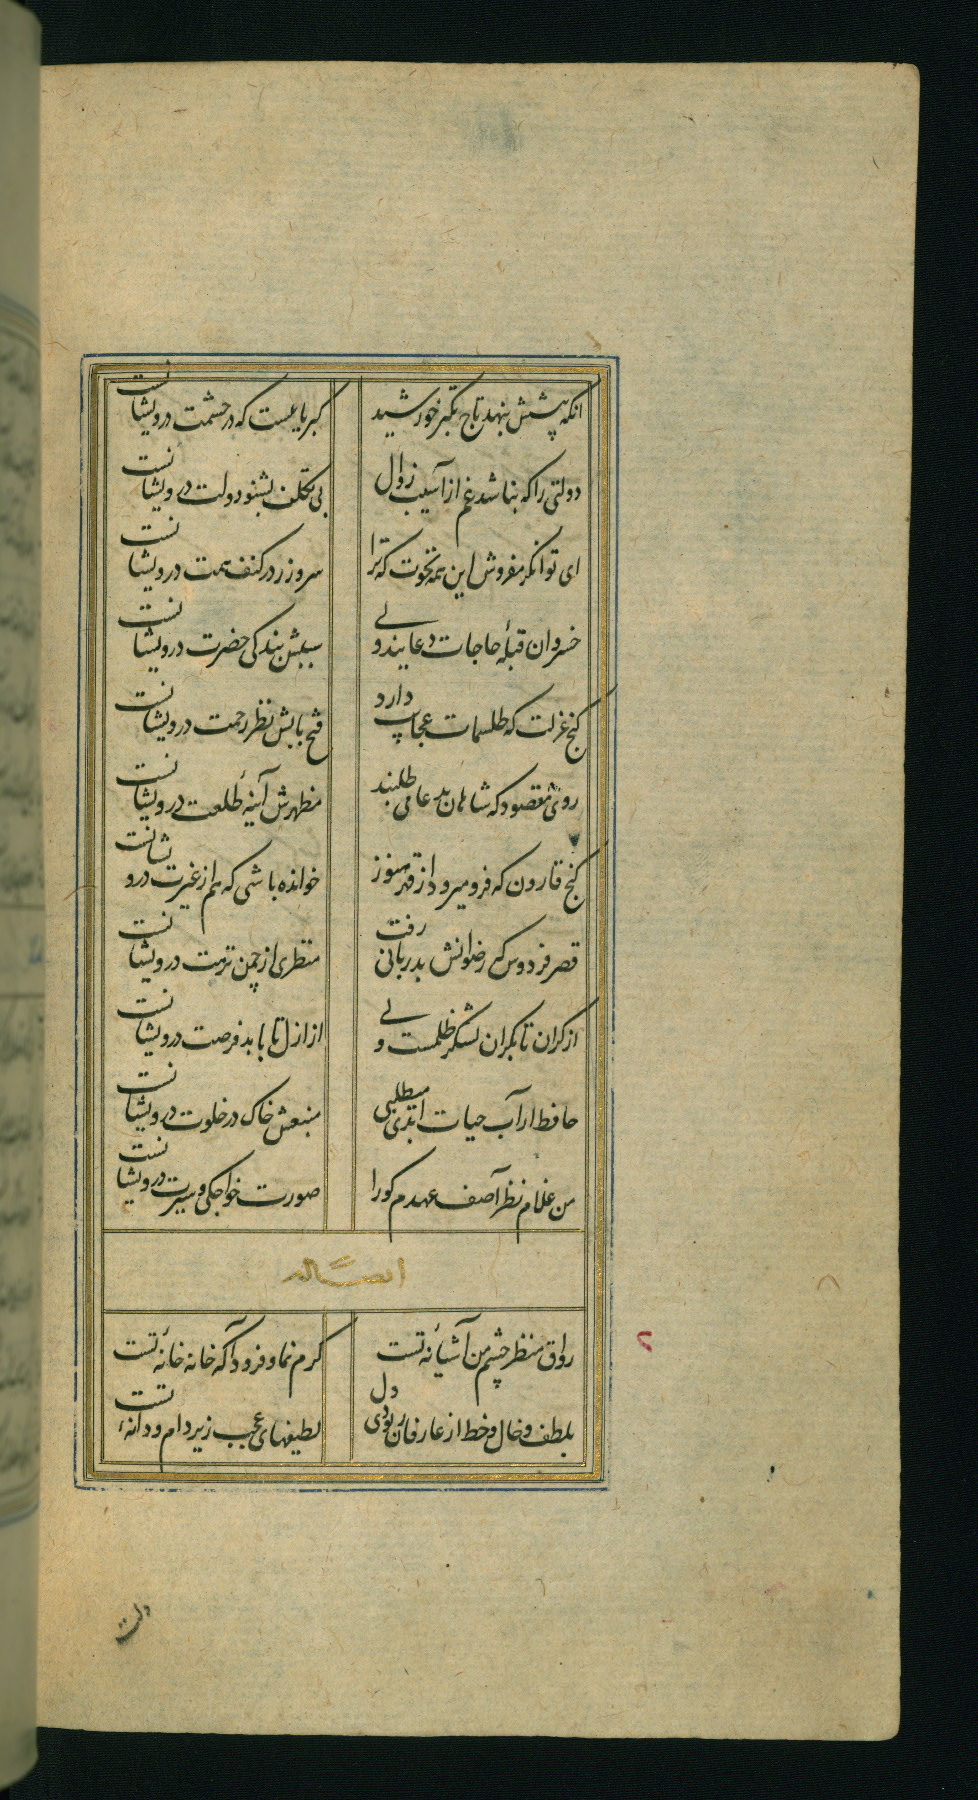 انکه پیشش بنهد تاج تکبر خورشید کبریاییست که در حشمت درویشانست
دولتی را که نباشد غم از آسیب زوال بی تکلف بشنو دولت درویشانست
ای توانکر مفروش این همه نخوت که ترا سر و زر در کنف همت درویشانست
خسروان قبلهٔ حاجات دعایند ولی سببش بندکی حضرت درویشانست
کنج عزلت که طلسمات عجایب دارد فتح بابش نظر رحمت درویشانست
روی مقصود که شاهان بدعا می طلبند مظهرش آینهٔ طلعت درویشانست
کنج قارون که فرو میرود از قهر هنوز خوانده باشی که هم از غیرت درویشانست
قصر فردوس که رضوانش بدربانی رفت منظری از چمن نزهت درویشانست
از کران تا بکران لشکر ظلمست ولی از ازل تا بابد فرصت درویشانست
حافظ ار آب حیات ابدی میطلبی منبعش خاک در خلوت درویشانست
من غلام نظر آصف عهدم کورا صورت خواجکی و سیرت درویشانست
ایضاله
رواق منظر چشم من آشیانهٔ تست کرم نما و فرود آ که خانه خانهٔ تست
بلطف و خال و خط از عارفان ربودی دل لطیفهای عجب زیر دام و دانهٔ تست
دلت